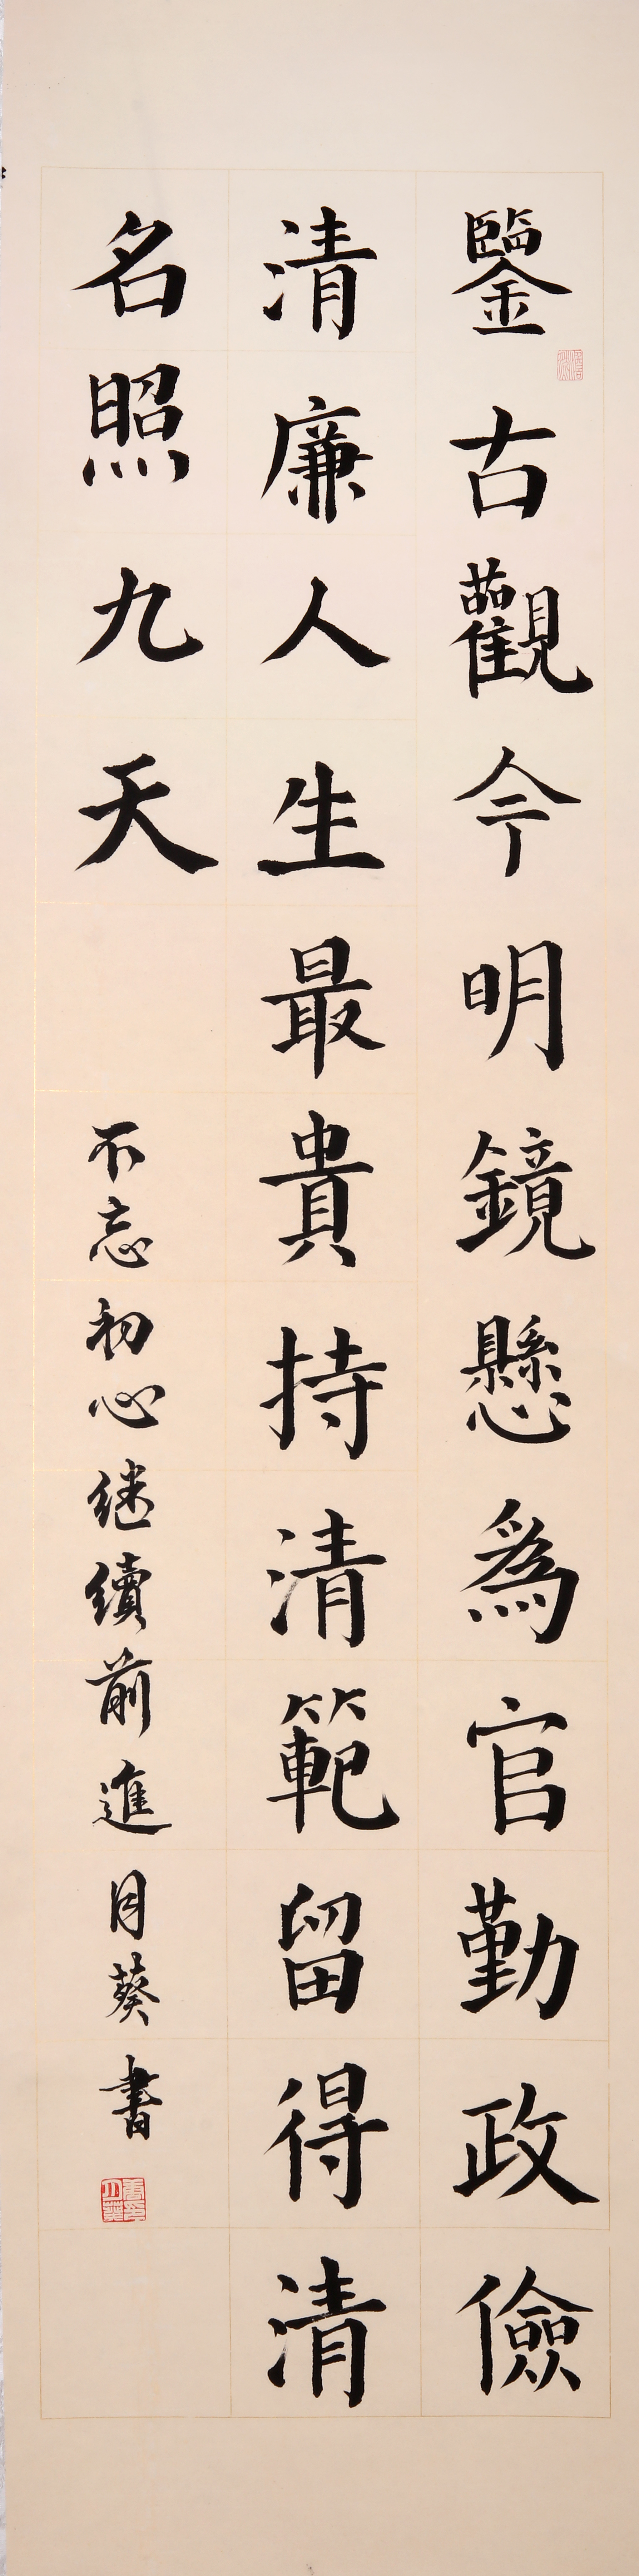 鑒古觀今明鏡懸爲官勤政儉
清廉人生最貴持清範留得清
名照九天
不忘初心继續前進月葵書